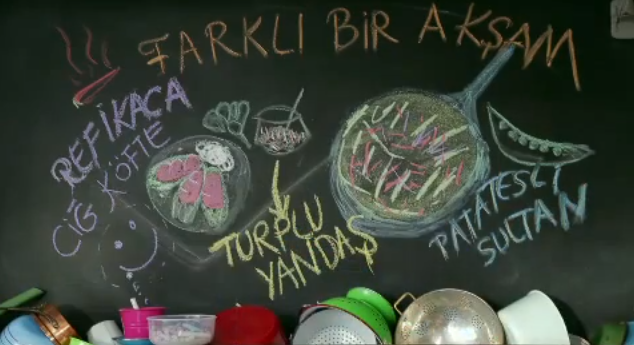 FARKLI BİR AKŞAM
REFİKACA
ÇİĞ KÖFTE
TURPLU
YANDAŞ
PATATESLİ
SULTAN